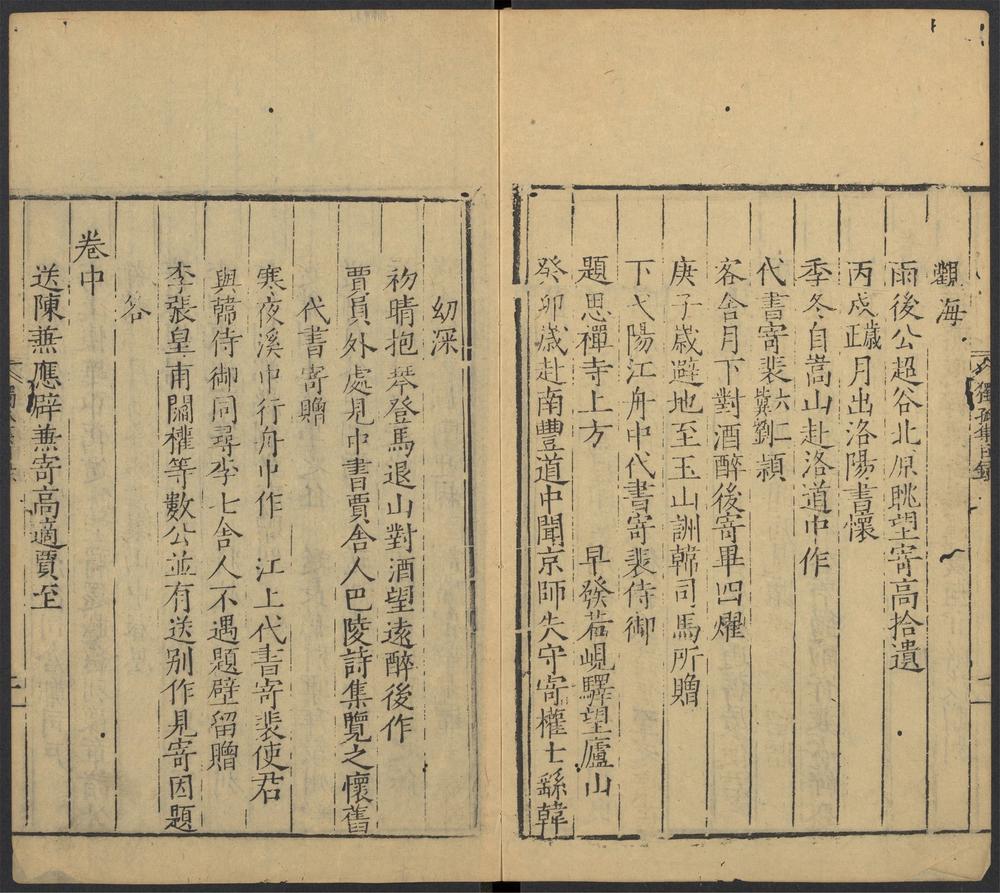 觀海
雨後公超谷北原眺望寄高拾遺
丙戍歲正月出洛陽書懷
季冬自嵩山赴洛道中作
代書寄裴六冀劉二潁
客舍月下對酒醉後寄畢四燿
庚子歲避地至玉山詶韓司馬所贈
下弋陽江舟中代書寄裴侍御
題思禪寺上方　早發若峴驛望廬山
癸卯歲赴南豐道中聞京師失守寄權士繇韓
幼深
初晴抱琴登馬退山對酒望遠醉後作
賈員外處見中書賈舍人巴陵詩集覽之懷舊
代書寄贈
寒夜溪中行舟中作　江上代書寄裴使君
與韓侍御同尋李七舍人不遇題壁留贈
李張皇甫閻權等數公並有送別作見寄因題
答
卷中
送陳兼應辟兼寄高適賈至